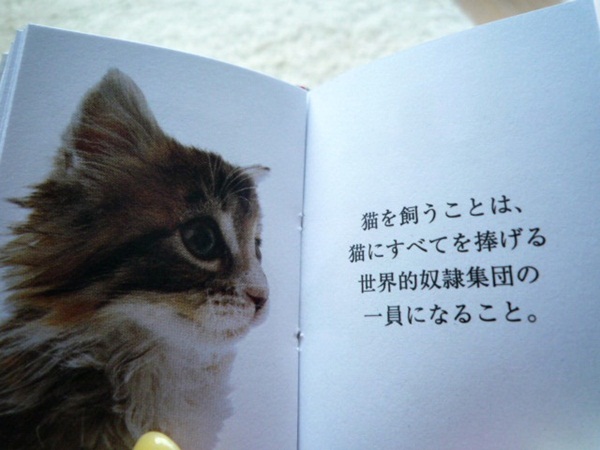 猫を飼うことは、
猫にすべてを捧げる
世界的奴隷集団の
一員になること。